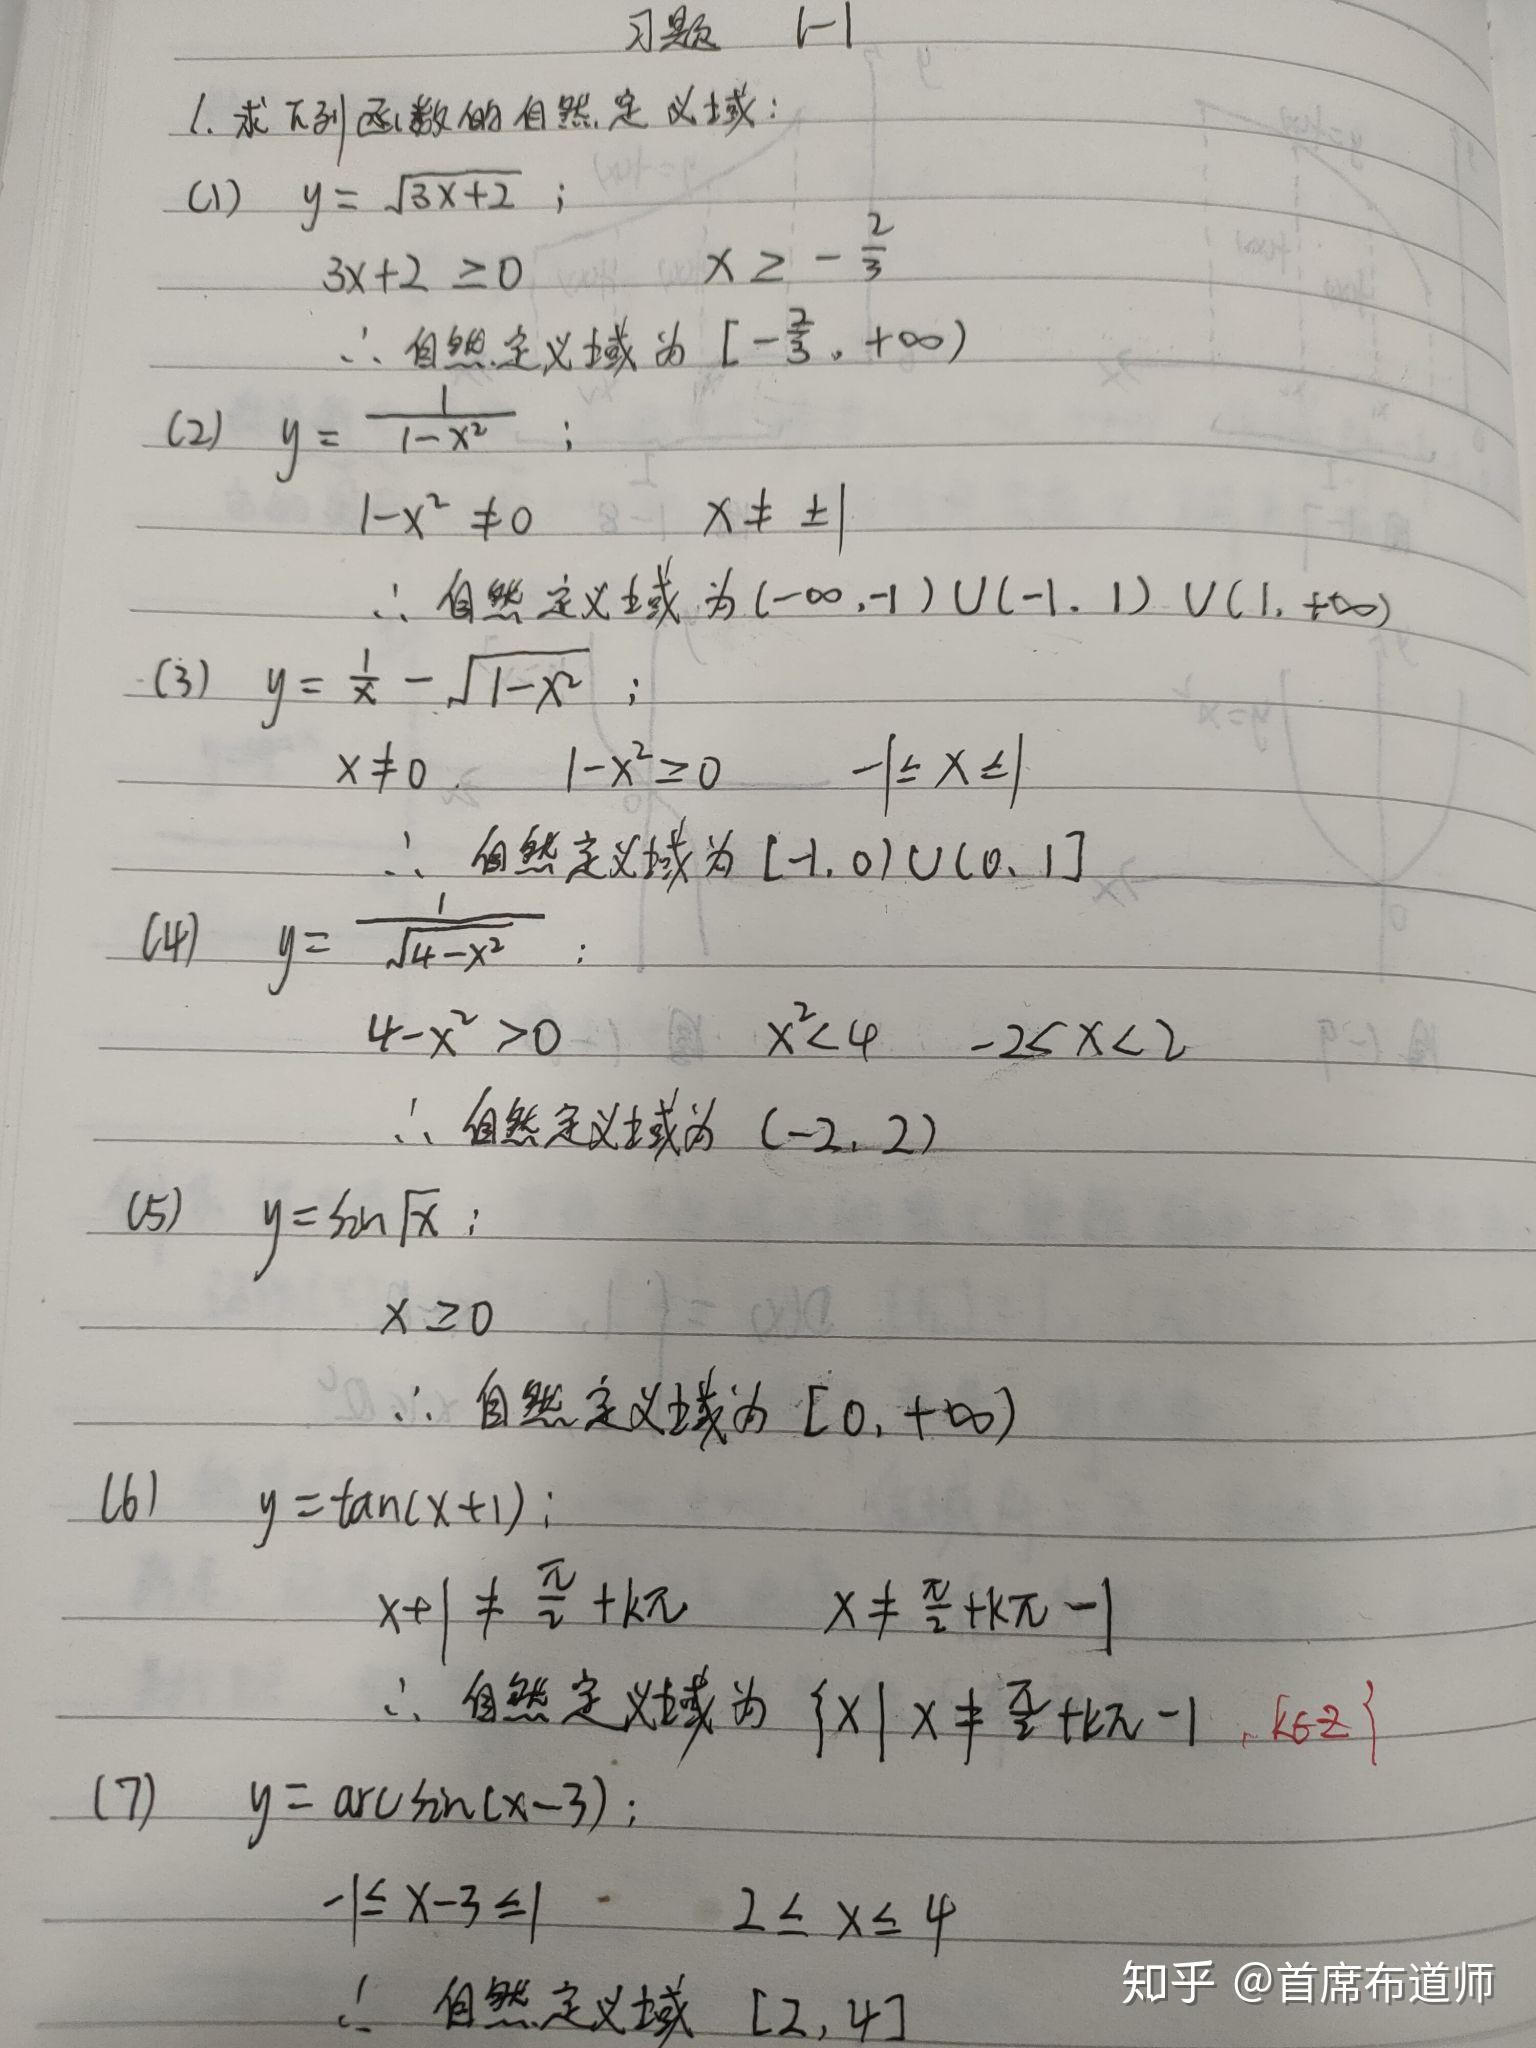 习题 1-1
1. 求下列函数的自然定义域:
(1) y = √(3x+2) ;
3x+2 ≥0 x ≥ -2/3
∴ 自然定义域为 [-2/3, +∞)
(2) y = 1/(1-x²) ;
1-x² ≠0 x ≠ ±1
∴ 自然定义域为(-∞,-1)∪(-1,1)∪(1,+∞)
(3) y = 1/x - √(1-x²) ;
x≠0 1-x²≥0 -1≤ x ≤1
∴ 自然定义域为[-1,0)∪(0,1]
(4) y = 1/√(4-x²) ;
4-x² >0 x²<4 -2< x<2
∴ 自然定义域为 (-2,2)
(5) y=sin√x ;
x ≥0
∴ 自然定义域为 [0,+∞)
(6) y=tan(x+1) ;
x+1 ≠ π/2 +kπ x ≠ π/2 +kπ -1
∴ 自然定义域为 {x| x ≠ π/2 +kπ -1 , k∈Z}
(7) y= arcsin(x-3) ;
-1≤ x-3 ≤1 2≤ x≤ 4
∴ 自然定义域 [2,4]
知乎 @首席布道师